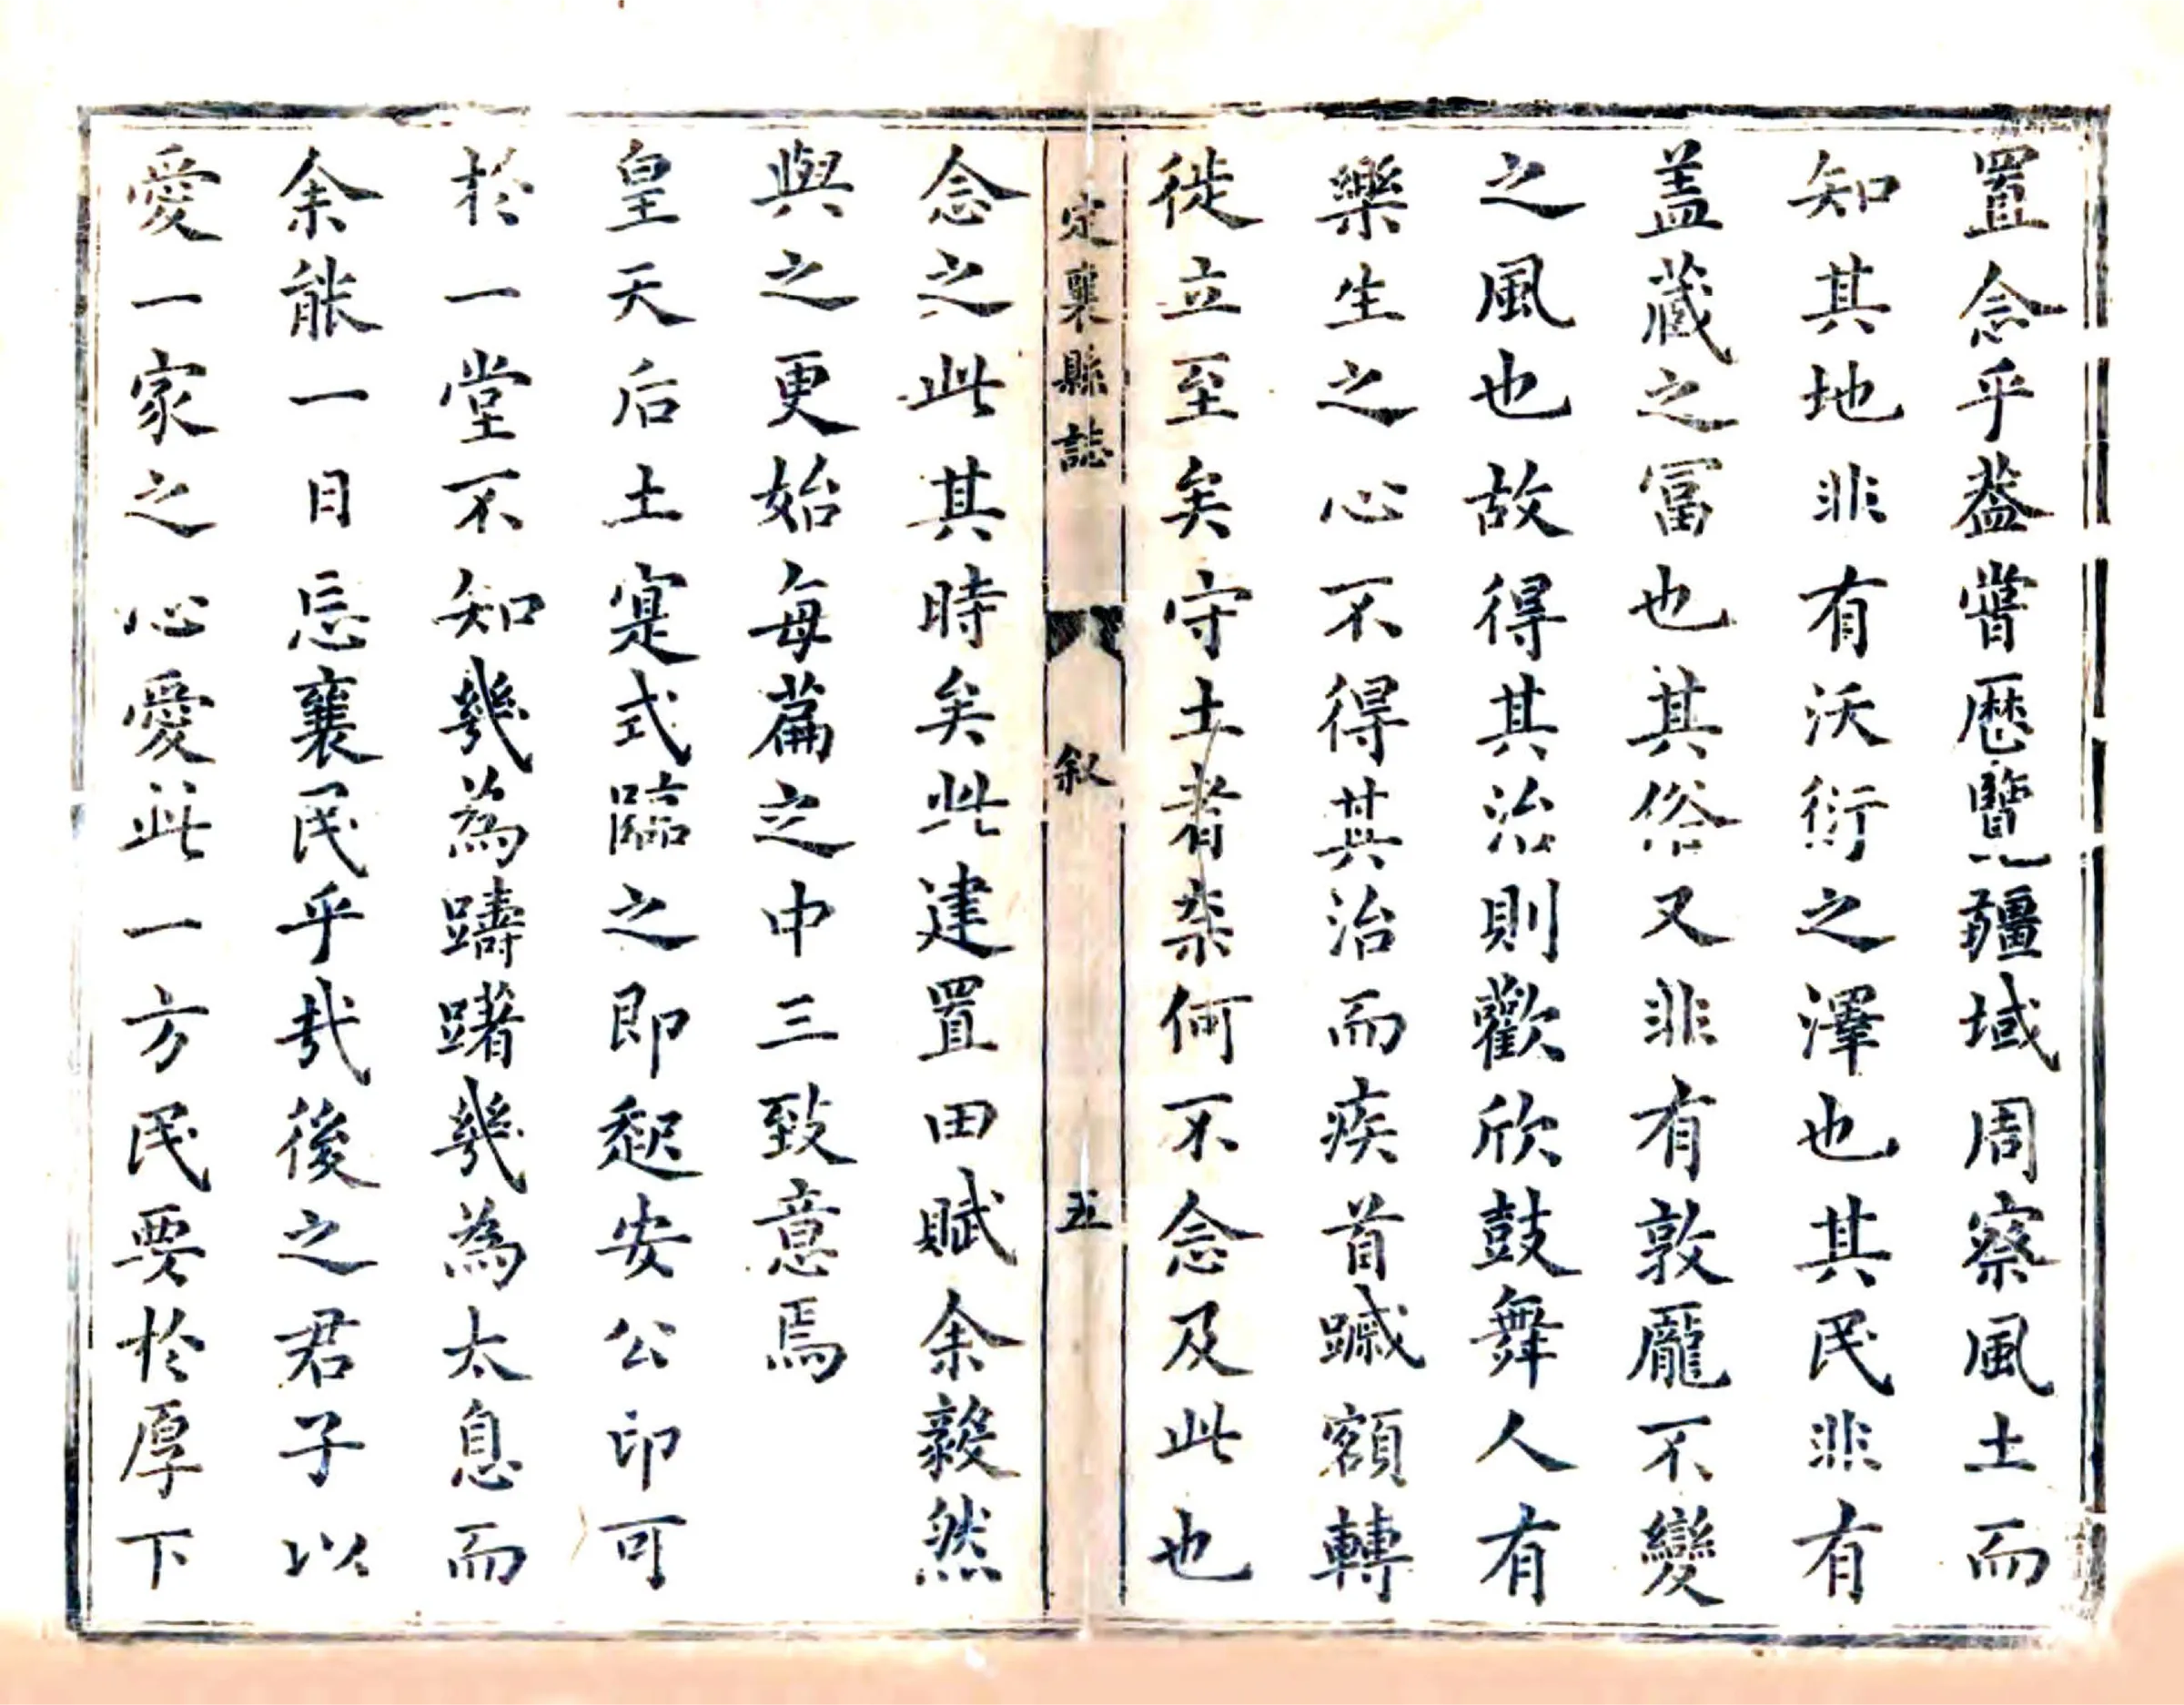 置念乎葢嘗歴覽疆域周察風土而
知其地非有沃衍之澤也其民非有
盖藏之冨也其俗又非有敦龐不變
之風也故得其治則歡欣鼓舞人有
樂生之心不得其治而疾首蹙額轉
徙立至矣守土者柰何不念及此也
定襄縣誌
敘
五
念之此其時矣此建置田賦余毅然
與之更始每篇之中三致意焉
皇天后土寔式臨之即起安公印可
於一堂不知幾為躊躇幾為太息而
余能一日忘襄民乎哉後之君子以
愛一家之心愛此一方民要於厚下